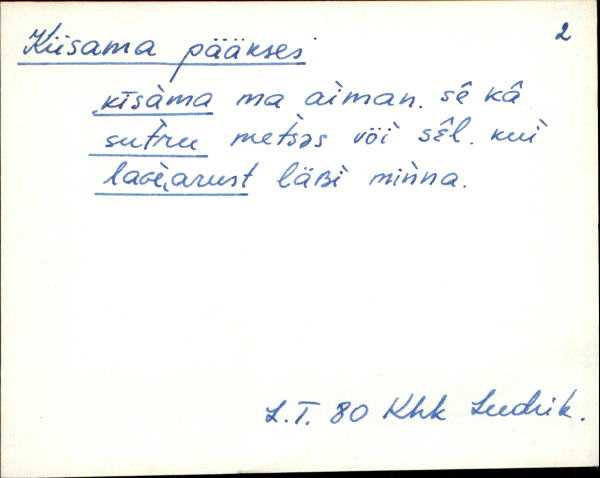 Kiisama pääkses 2
kīsàma ma aìman. sê kâ
sut̀ru met̀səs vöì sêl. kuì
laoèarust läʙì miǹna.
L.T. 80 Khk Leedrik.